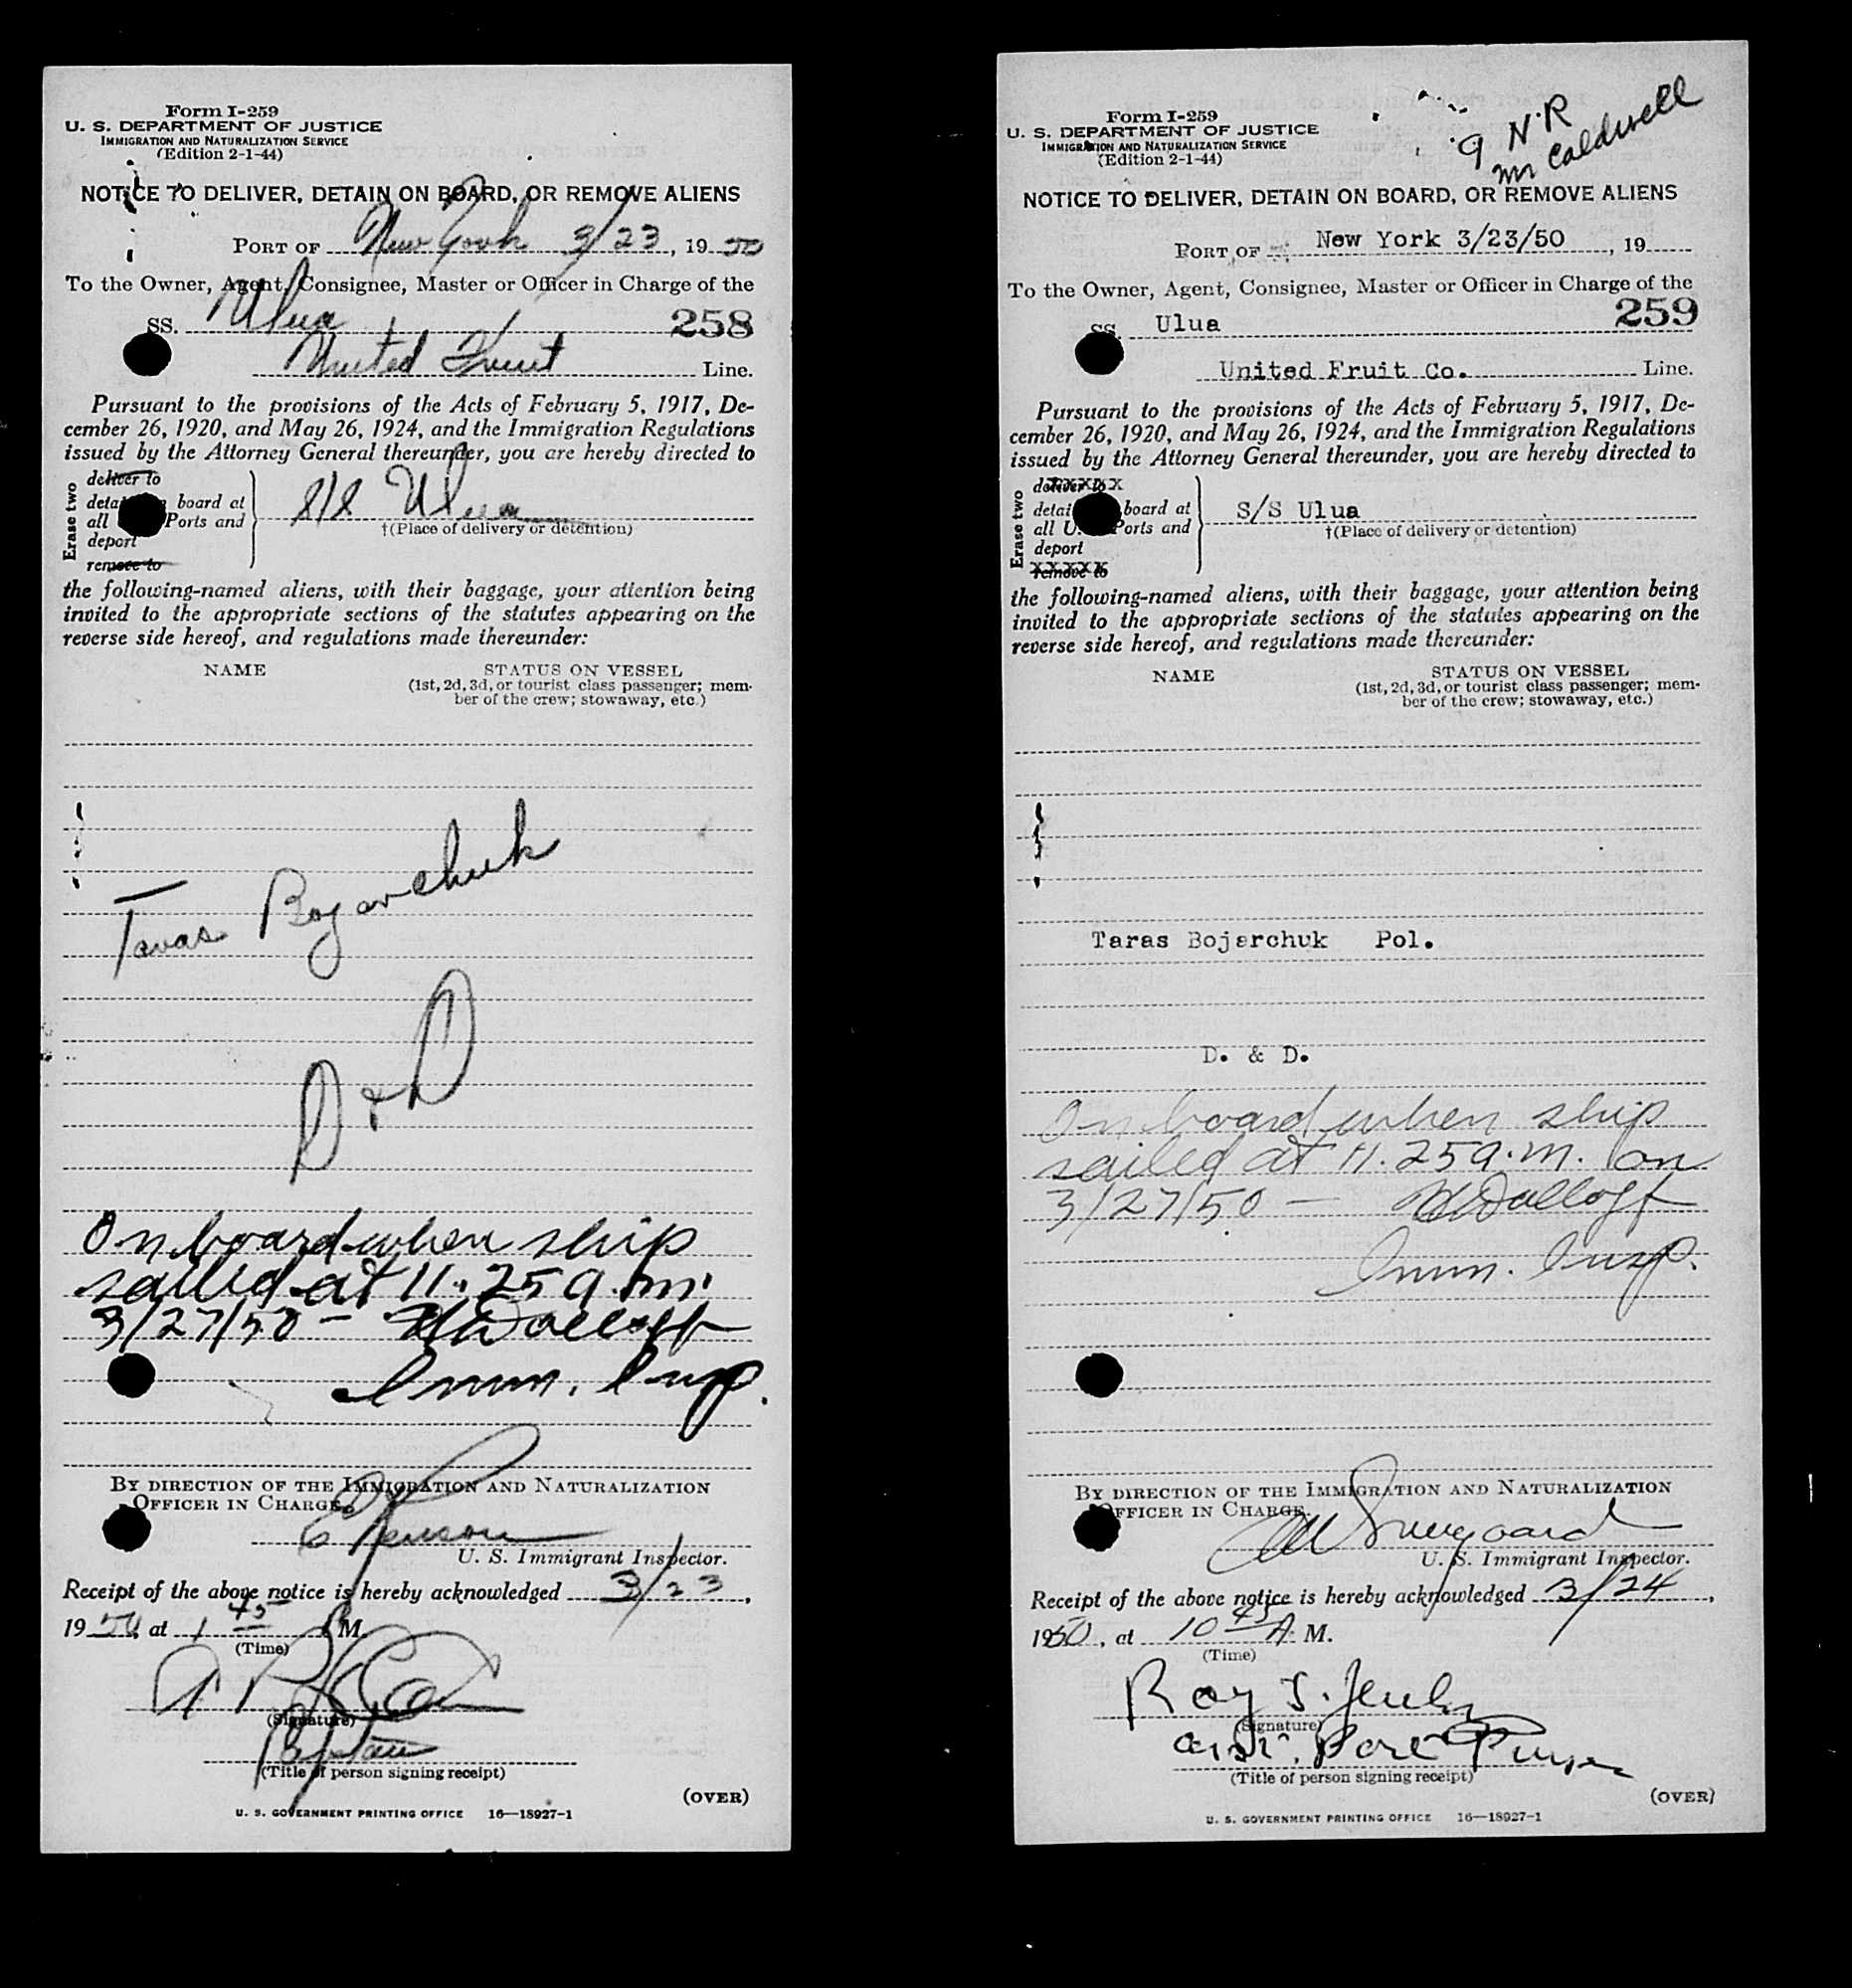 Form I-259
U. S. DEPARTMENT OF JUSTICE
IMMIGRATION AND NATURALIZATION SERVICE
(Edition 2-1-44)
NOTICE TO DELIVER, DETAIN ON BOARD, OR REMOVE ALIENS
PORT OF New York 3/23, 19 50
To the Owner, Agent, Consignee, Master or Officer in Charge of the
SS. Ulua 258
United Fruit Line.
Pursuant to the provisions of the Acts of February 5, 1917, De-
cember 26, 1920, and May 26, 1924, and the Immigration Regulations
issued by the Attorney General thereunder, you are hereby directed to
Erase two
deliver to
board at
all Ports and
deport
remove to
S/S Ulua
†(Place of delivery or detention)
the following-named aliens, with their baggage, your attention being
invited to the appropriate sections of the statutes appearing on the
reverse side hereof, and regulations made thereunder:
NAME STATUS ON VESSEL
(1st, 2d, 3d, or tourist class passenger; mem-
ber of the crew; stowaway, etc.)
Taras
D & D
On board when ship
sailed at 11.25 a.m.
3/27/50 –
Imm. Insp.
BY DIRECTION OF THE IMMIGRATION AND NATURALIZATION
OFFICER IN CHARGE.
U. S. Immigrant Inspector.
Receipt of the above notice is hereby acknowledged 3/23,
19 50, at 1 45 P M.
(Time)
(Signature)
Captain
(Title of person signing receipt)
(OVER)
U. S. GOVERNMENT PRINTING OFFICE 16—18927-1
9 N.R
Mr Caldwell
Form I-259
U. S. DEPARTMENT OF JUSTICE
IMMIGRATION AND NATURALIZATION SERVICE
(Edition 2-1-44)
NOTICE TO DELIVER, DETAIN ON BOARD, OR REMOVE ALIENS
PORT OF New York 3/23/50, 19
To the Owner, Agent, Consignee, Master or Officer in Charge of the
SS. Ulua 259
United Fruit Co. Line.
Pursuant to the provisions of the Acts of February 5, 1917, De-
cember 26, 1920, and May 26, 1924, and the Immigration Regulations
issued by the Attorney General thereunder, you are hereby directed to
Erase two
deliver to
board at
all U. Ports and
deport
remove to
S/S Ulua
†(Place of delivery or detention)
the following-named aliens, with their baggage, your attention being
invited to the appropriate sections of the statutes appearing on the
reverse side hereof, and regulations made thereunder:
NAME STATUS ON VESSEL
(1st, 2d, 3d, or tourist class passenger; mem-
ber of the crew; stowaway, etc.)
Taras Bojerchuk Pol.
D. & D.
On board when ship
sailed at 11.25 a.m. on
3/27/50 –
Imm. Insp.
BY DIRECTION OF THE IMMIGRATION AND NATURALIZATION
OFFICER IN CHARGE.
U. S. Immigrant Inspector.
Receipt of the above notice is hereby acknowledged 3/24,
1950, at 10 45 A. M.
(Time)
Roy
(Signature)
Asst. Port Purser
(Title of person signing receipt)
(OVER)
U. S. GOVERNMENT PRINTING OFFICE 16—18927-1